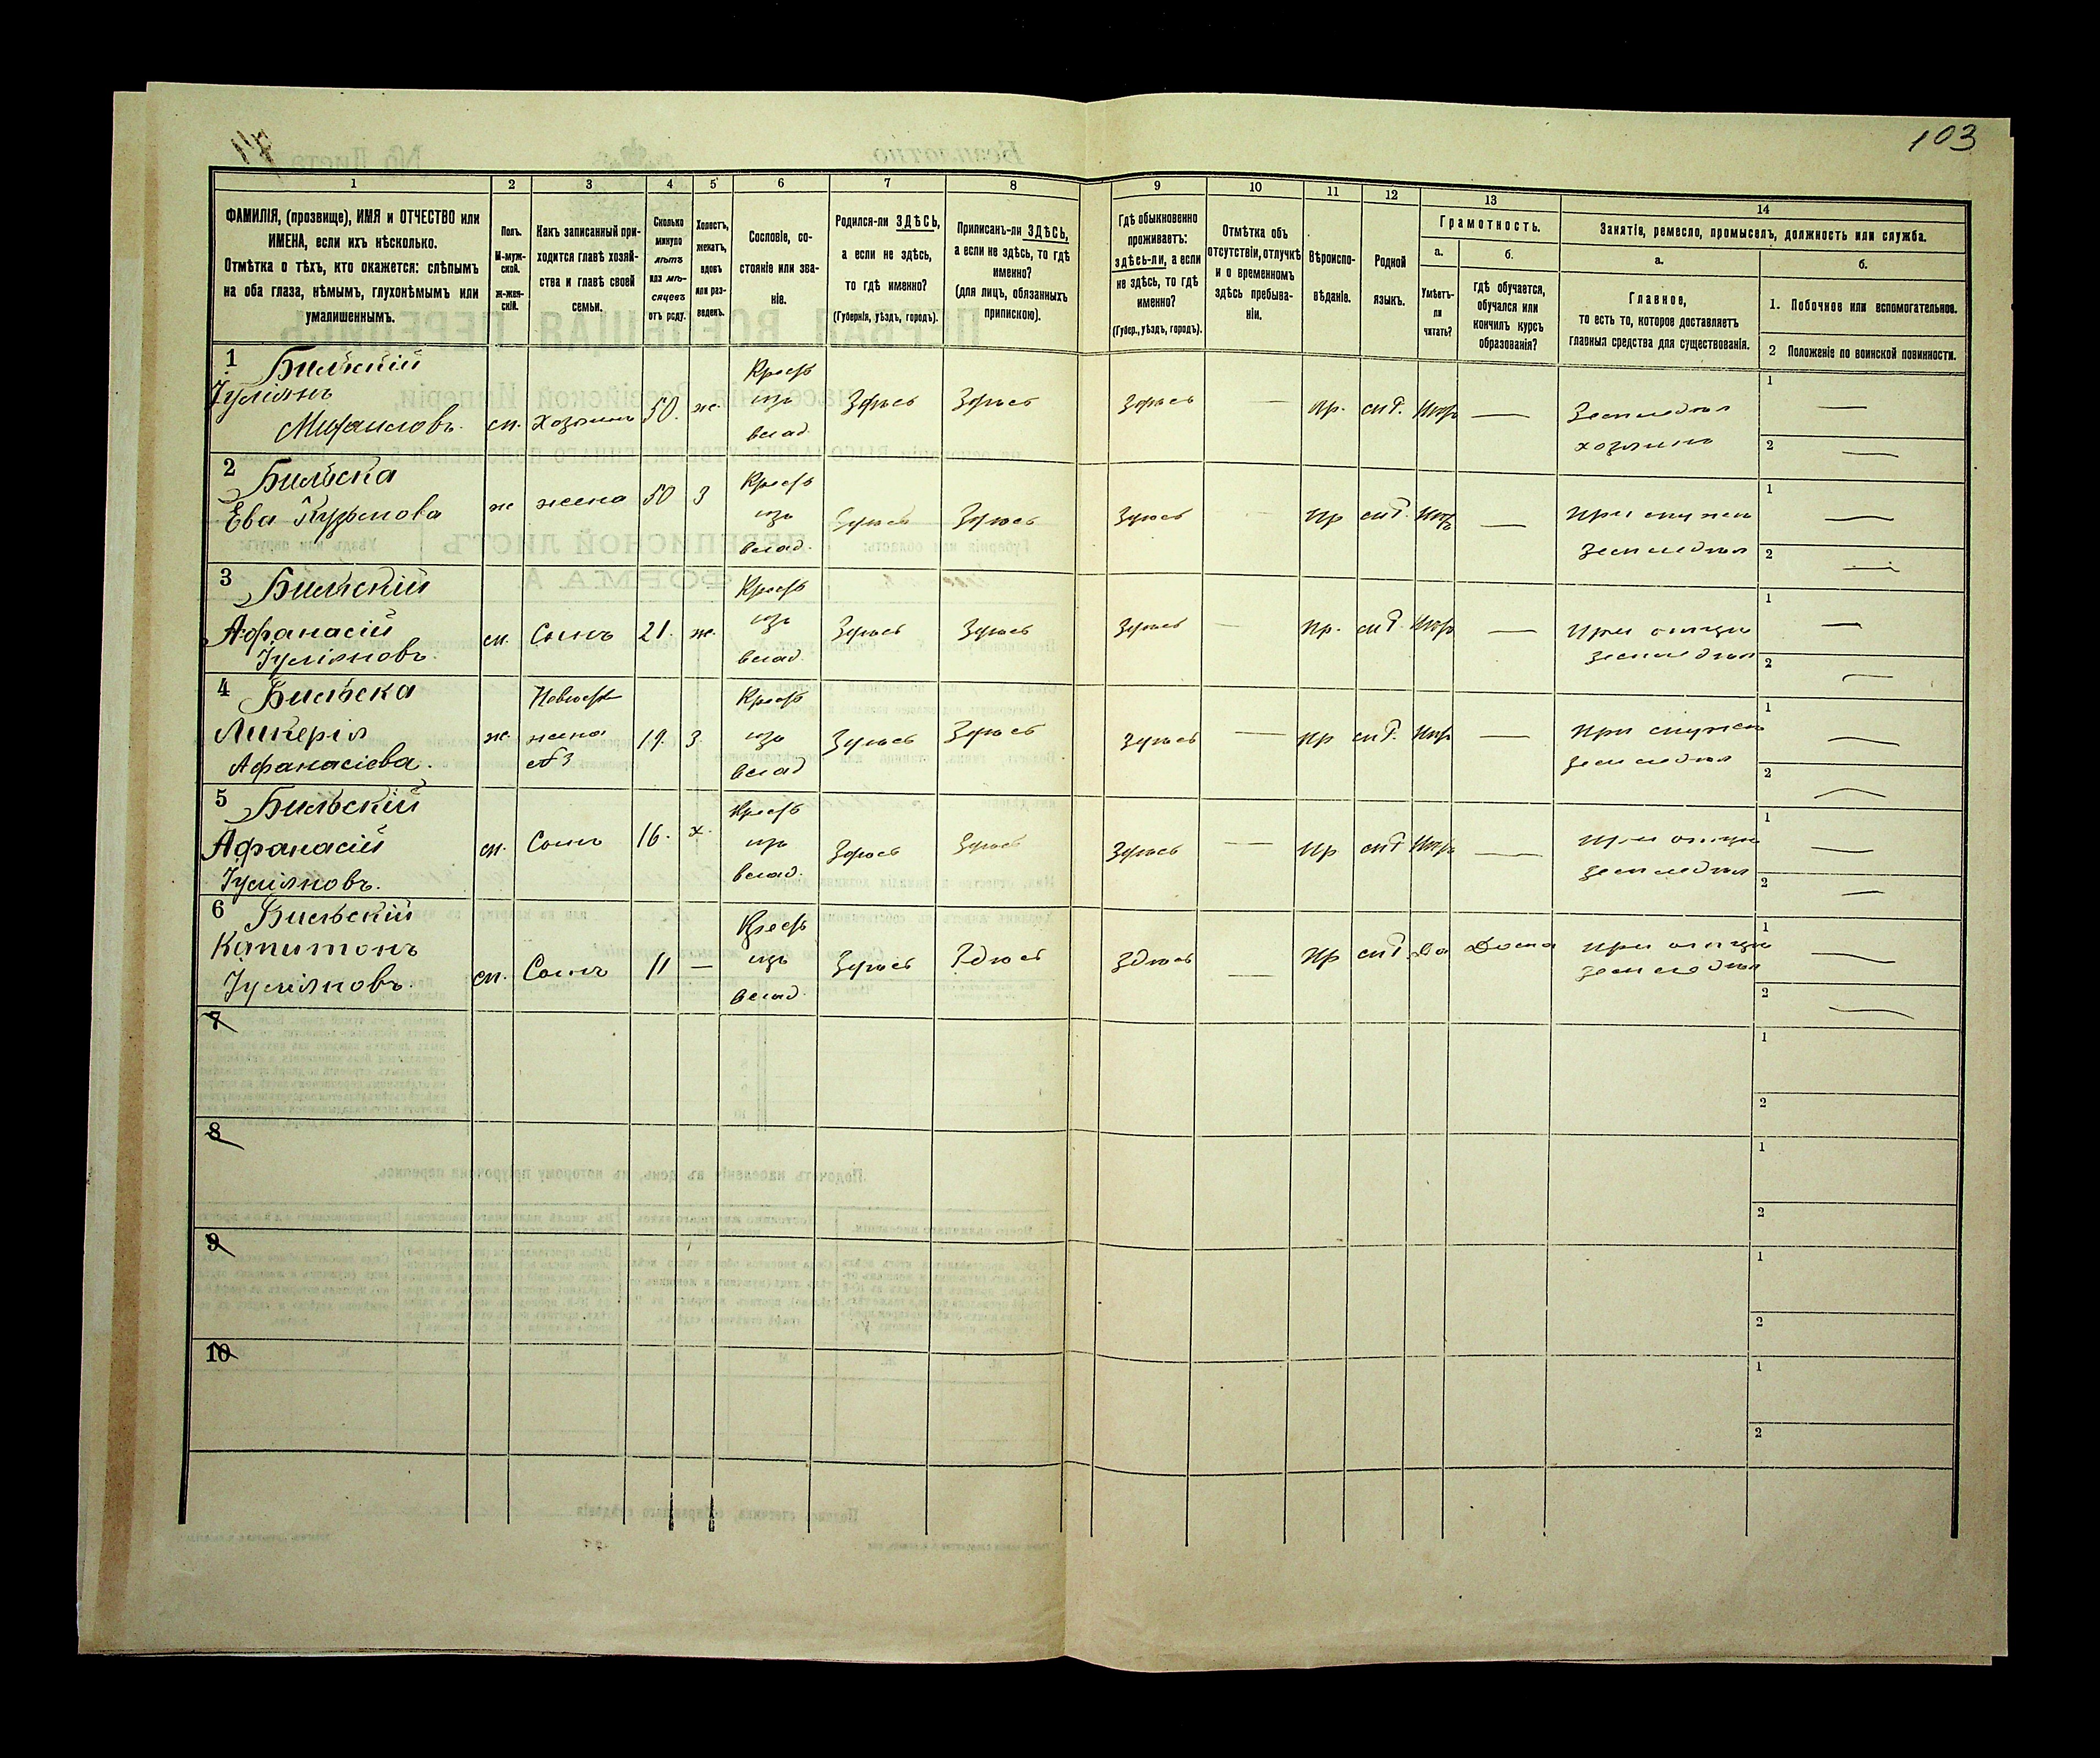 103
1
2
3
4
5
6
7
8
9
10
11
12
13
14
ФАМИЛІЯ, (прозвище), ИМЯ и ОТЧЕСТВО или
ИМЕНА, если ихъ нѣсколько.
Отмѣтка о тѣхъ, кто окажется: слѣпымъ
на оба глаза, нѣмымъ, глухонѣмымъ или
умалишеннымъ.
Полъ.
М-муж-
ской.
ж-жен-
скій.
Какъ записанный при-
ходится главѣ хозяй-
ства и главѣ своей
семьи.
Сколько
минуло
лѣтъ
или мѣ-
сяцевъ
отъ роду.
Холостъ,
женатъ,
вдовъ
или раз-
веденъ.
Сословіе, со-
стояніе или зва-
ніе.
Родился-ли ЗДѢСЬ,
а если не здѣсь,
то гдѣ именно?
(Губернія, уѣздъ, городъ).
Приписанъ-ли ЗДѢСЬ,
а если не здѣсь, то гдѣ
именно?
(для лицъ, обязанныхъ
припискою).
Гдѣ обыкновенно
проживаетъ:
здѣсь-ли, а если
не здѣсь, то гдѣ
именно?
(Губер., уѣздъ, городъ).
Отмѣтка объ
отсутствіи, отлучкѣ
и о временномъ
здѣсь пребыва-
ніи.
Вѣроиспо-
вѣданіе.
Родной
языкъ.
Грамотность.
а.
Умѣетъ-
ли
читать?
б.
гдѣ обучается,
обучался или
кончилъ курсъ
образованія?
Занятіе, ремесло, промыселъ, должность или служба.
а.
Главное,
то есть то, которое доставляетъ
главныя средства для существованія.
б.
1. Побочное или вспомогательное.
2 Положеніе по воинской повинности.
1 Бильскій
Іуліянъ
Михаиловъ. м. хозяинъ 50. ж. Крест изъ влад. Здѣсь Здѣсь Здѣсь — пр. — Земледѣл
хозяинъ
1 —
2 —
2 Бильска
Ева Кузьмова ж жена 50 з Крест изъ влад. Здѣсь Здѣсь Здѣсь пр — при мужѣ
земледѣл
1 —
2 —
3 Бильскій
Афанасій
Іуліяновъ. м. Сынъ 21. ж. Крест изъ влад. Здѣсь Здѣсь Здѣсь — пр. — при отцѣ
земледѣл
1 —
2 —
4 Бильска
Ликерія
Афанасіева. ж. Невѣст жена №3 19. з. Крест изъ влад Здѣсь Здѣсь Здѣсь — пр — при мужѣ
земледѣл
1 —
2 —
5 Бильскій
Афанасій
Іуліяновъ. м. Сынъ 16. х. Крест изъ влад. Здѣсь Здѣсь Здѣсь — пр — при отцѣ
земледѣл
1 —
2 —
6 Бильскій
Капитонъ
Іуліяновъ. м. Сынъ 11 — Крест изъ влад. Здѣсь Здѣсь Здѣсь — пр Да Дома при отцѣ
земледѣл
1 —
2 —
7
1
2
8
1
2
9
1
2
10
1
2